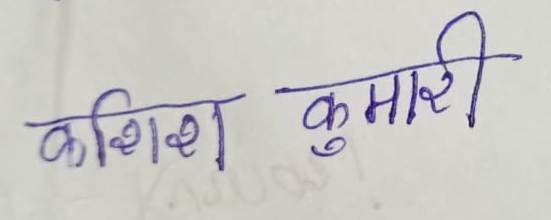 कशिश कुमारी